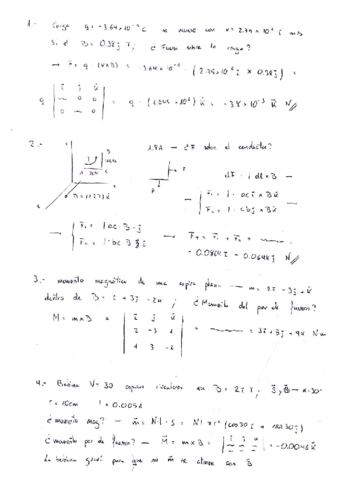 1.- Carga q = -3.64×10⁻⁹ C se mueve con v = 2.75×10⁶ i m/s
Si el B = 0.38 j T, ¿ Fuerza sobre la carga?
→ F = q (v×B) = -3.64×10⁻⁹ · (2.75×10⁶ i × 0.38 j) =
q | i j k | = q · (1.045×10⁶) k = -3.8×10⁻³ k N
2.- 1.8A → ¿F sobre el conductor?
dF = I dl×B →
F₁ = I · ac i × B k
F₂ = I · cb j × B k
F₁ = I ac B -j
F₂ = I bc B i
→ F_T = F₁ + F₂ =
-0.0864 i - 0.0648 j N
3.- momento magnético de una espira plana → m = 2i - 3j + k
dentro de B = i + 3j - 2k ; ¿ Momento del par de fuerzas?
M = m×B = | i j k | = = 3i + 5j + 9k N·m
2 -3 1
1 3 -2
4.- Bobina N = 30 espiras circulares en B = 2 i T ;
r = 10cm I = 0.005A
¿ momento mag? → m = N·I·S = N I πr² (cos30 i + sen30 j)
¿ momento par de fuerzas? → M = m×B = | i j k | = -0.0046 k
La bobina girará para que su m se alinee con B